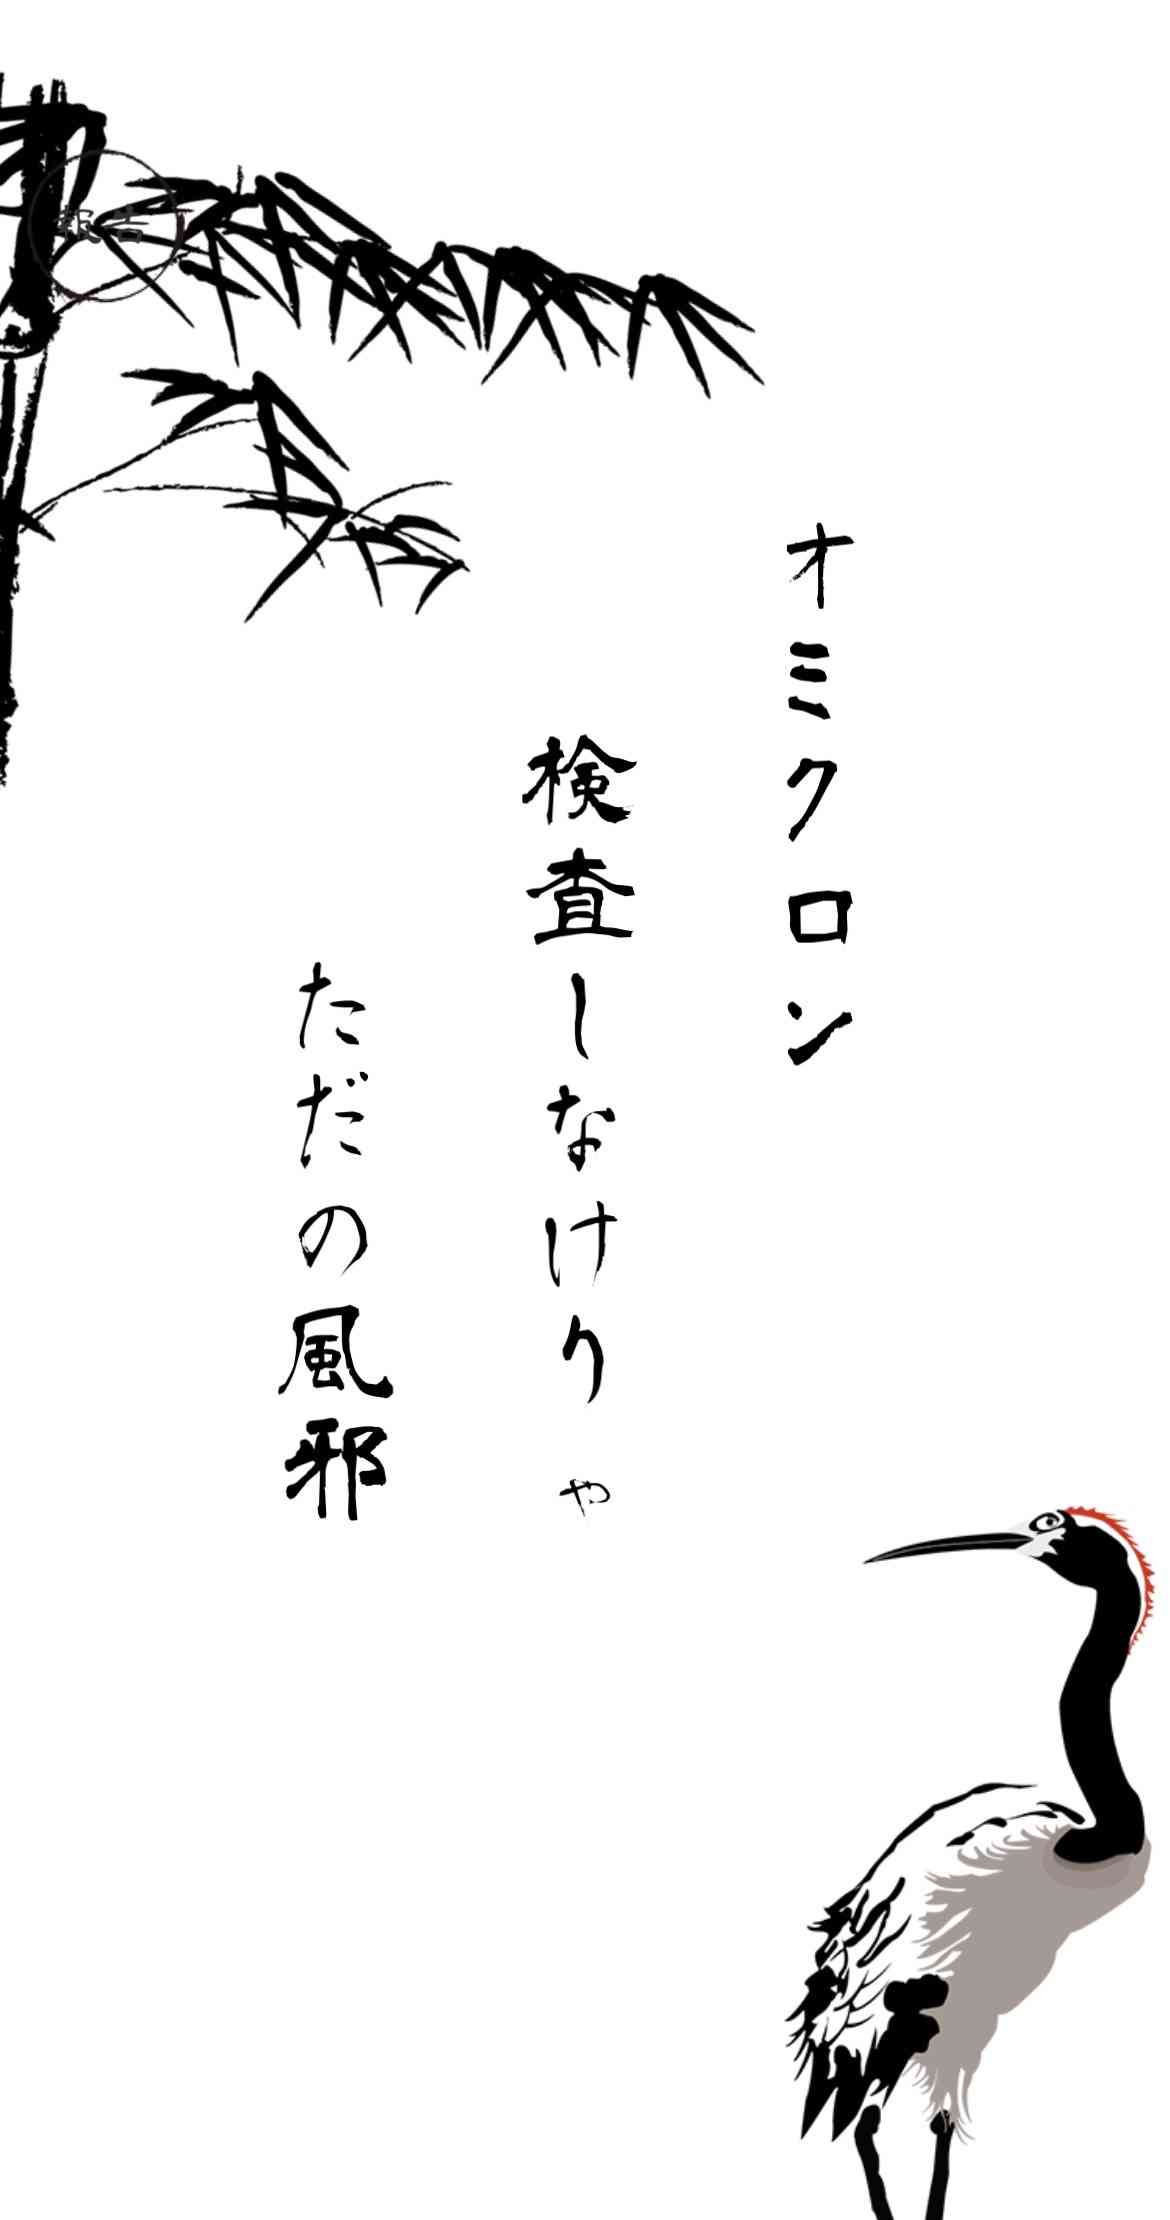 オミクロン
検査しなけりゃ
ただの風邪
報告